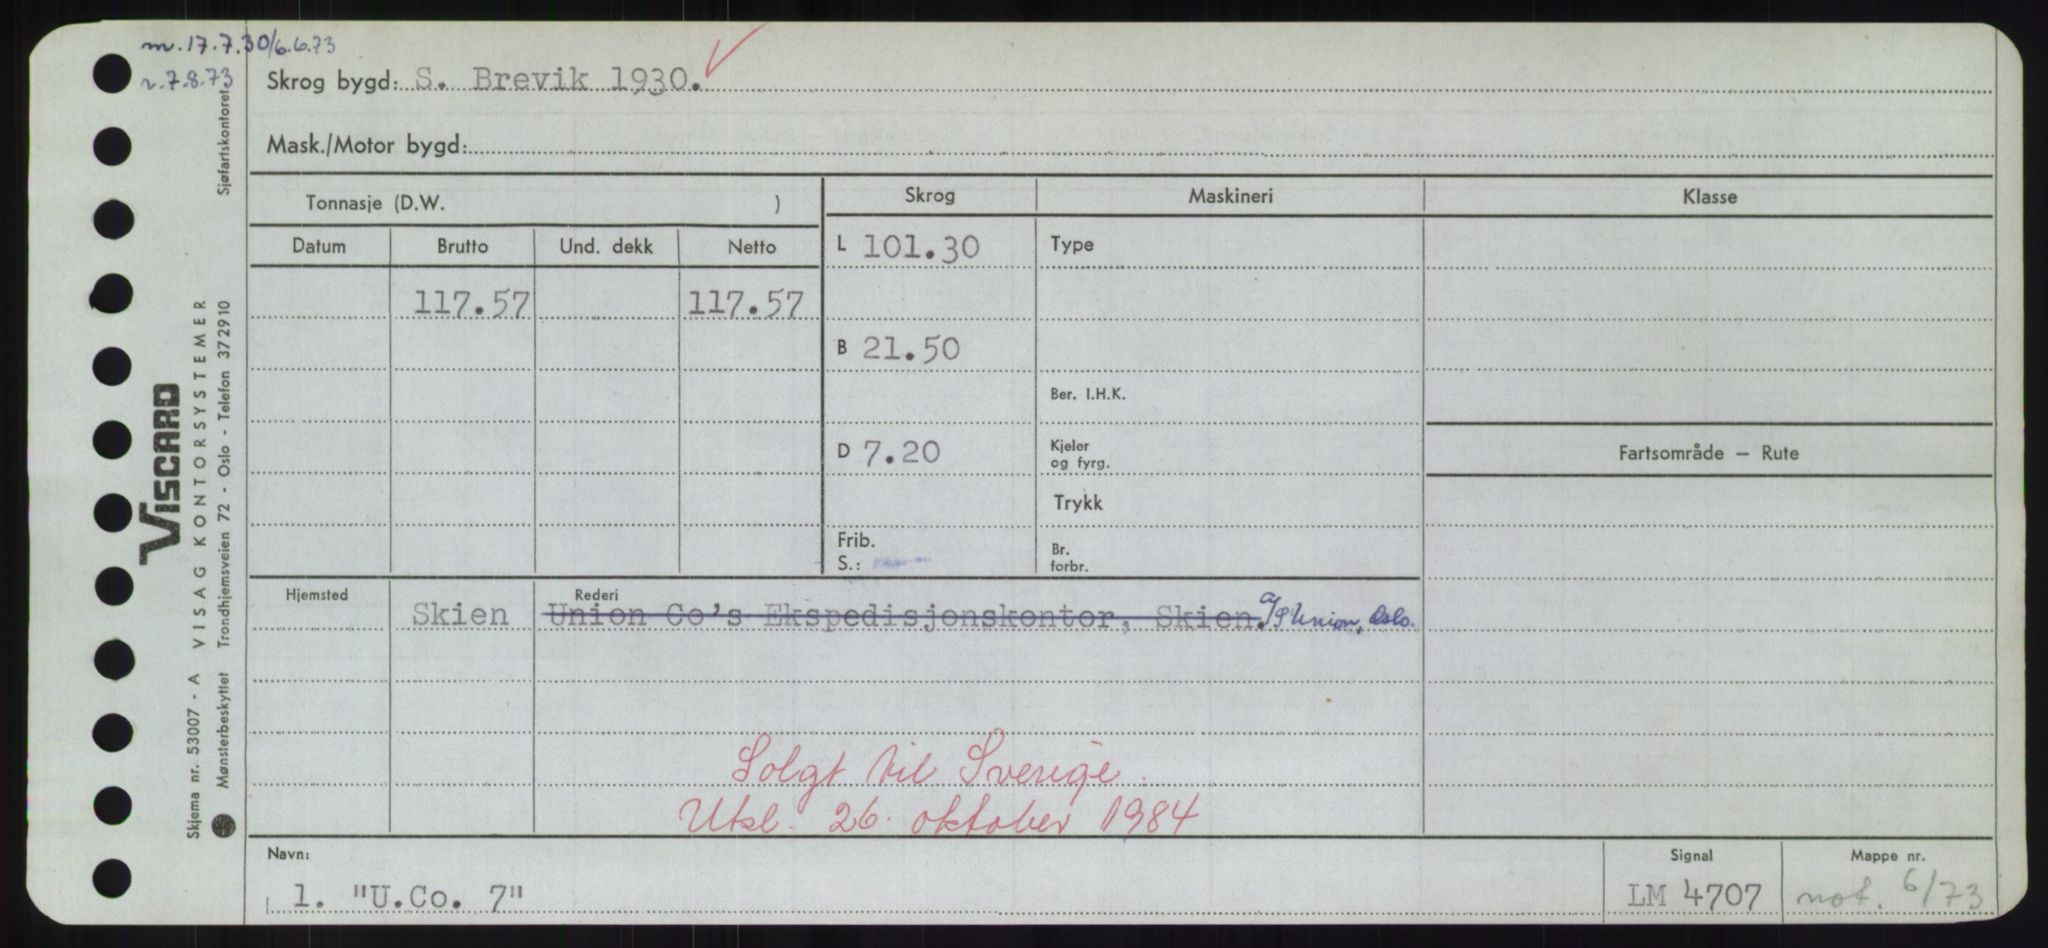 m. 17.7.30/6.6.73
r. 7.8.73
Skrog bygd: S. Brevik 1930.
Mask./Motor bygd:
Tonnasje (D.W. )
Skrog Maskineri Klasse
Datum Brutto Und. dekk Netto
L 101.30 Type
117.57 117.57
B 21.50
Ber. I.H.K.
D 7.20
Kjeler
og fyrg.
Fartsområde – Rute
Trykk
Frib.
S.:
Br.
forbr.
Hjemsted Rederi
Skien Union Co's Ekspedisjonskontor, Skien. a/s Union, Oslo.
Solgt til Sverige.
Utsl. 26. oktober 1984
Navn: Signal Mappe nr.
1. "U.Co. 7" LM 4707 not. 6/73
Sjøfartskontoret
VISCARD
VISAG KONTORSYSTEMER
Skjema nr. 53007 - A
Mønsterbeskyttet Trondhjemsveien 72 - Oslo - Telefon 372910